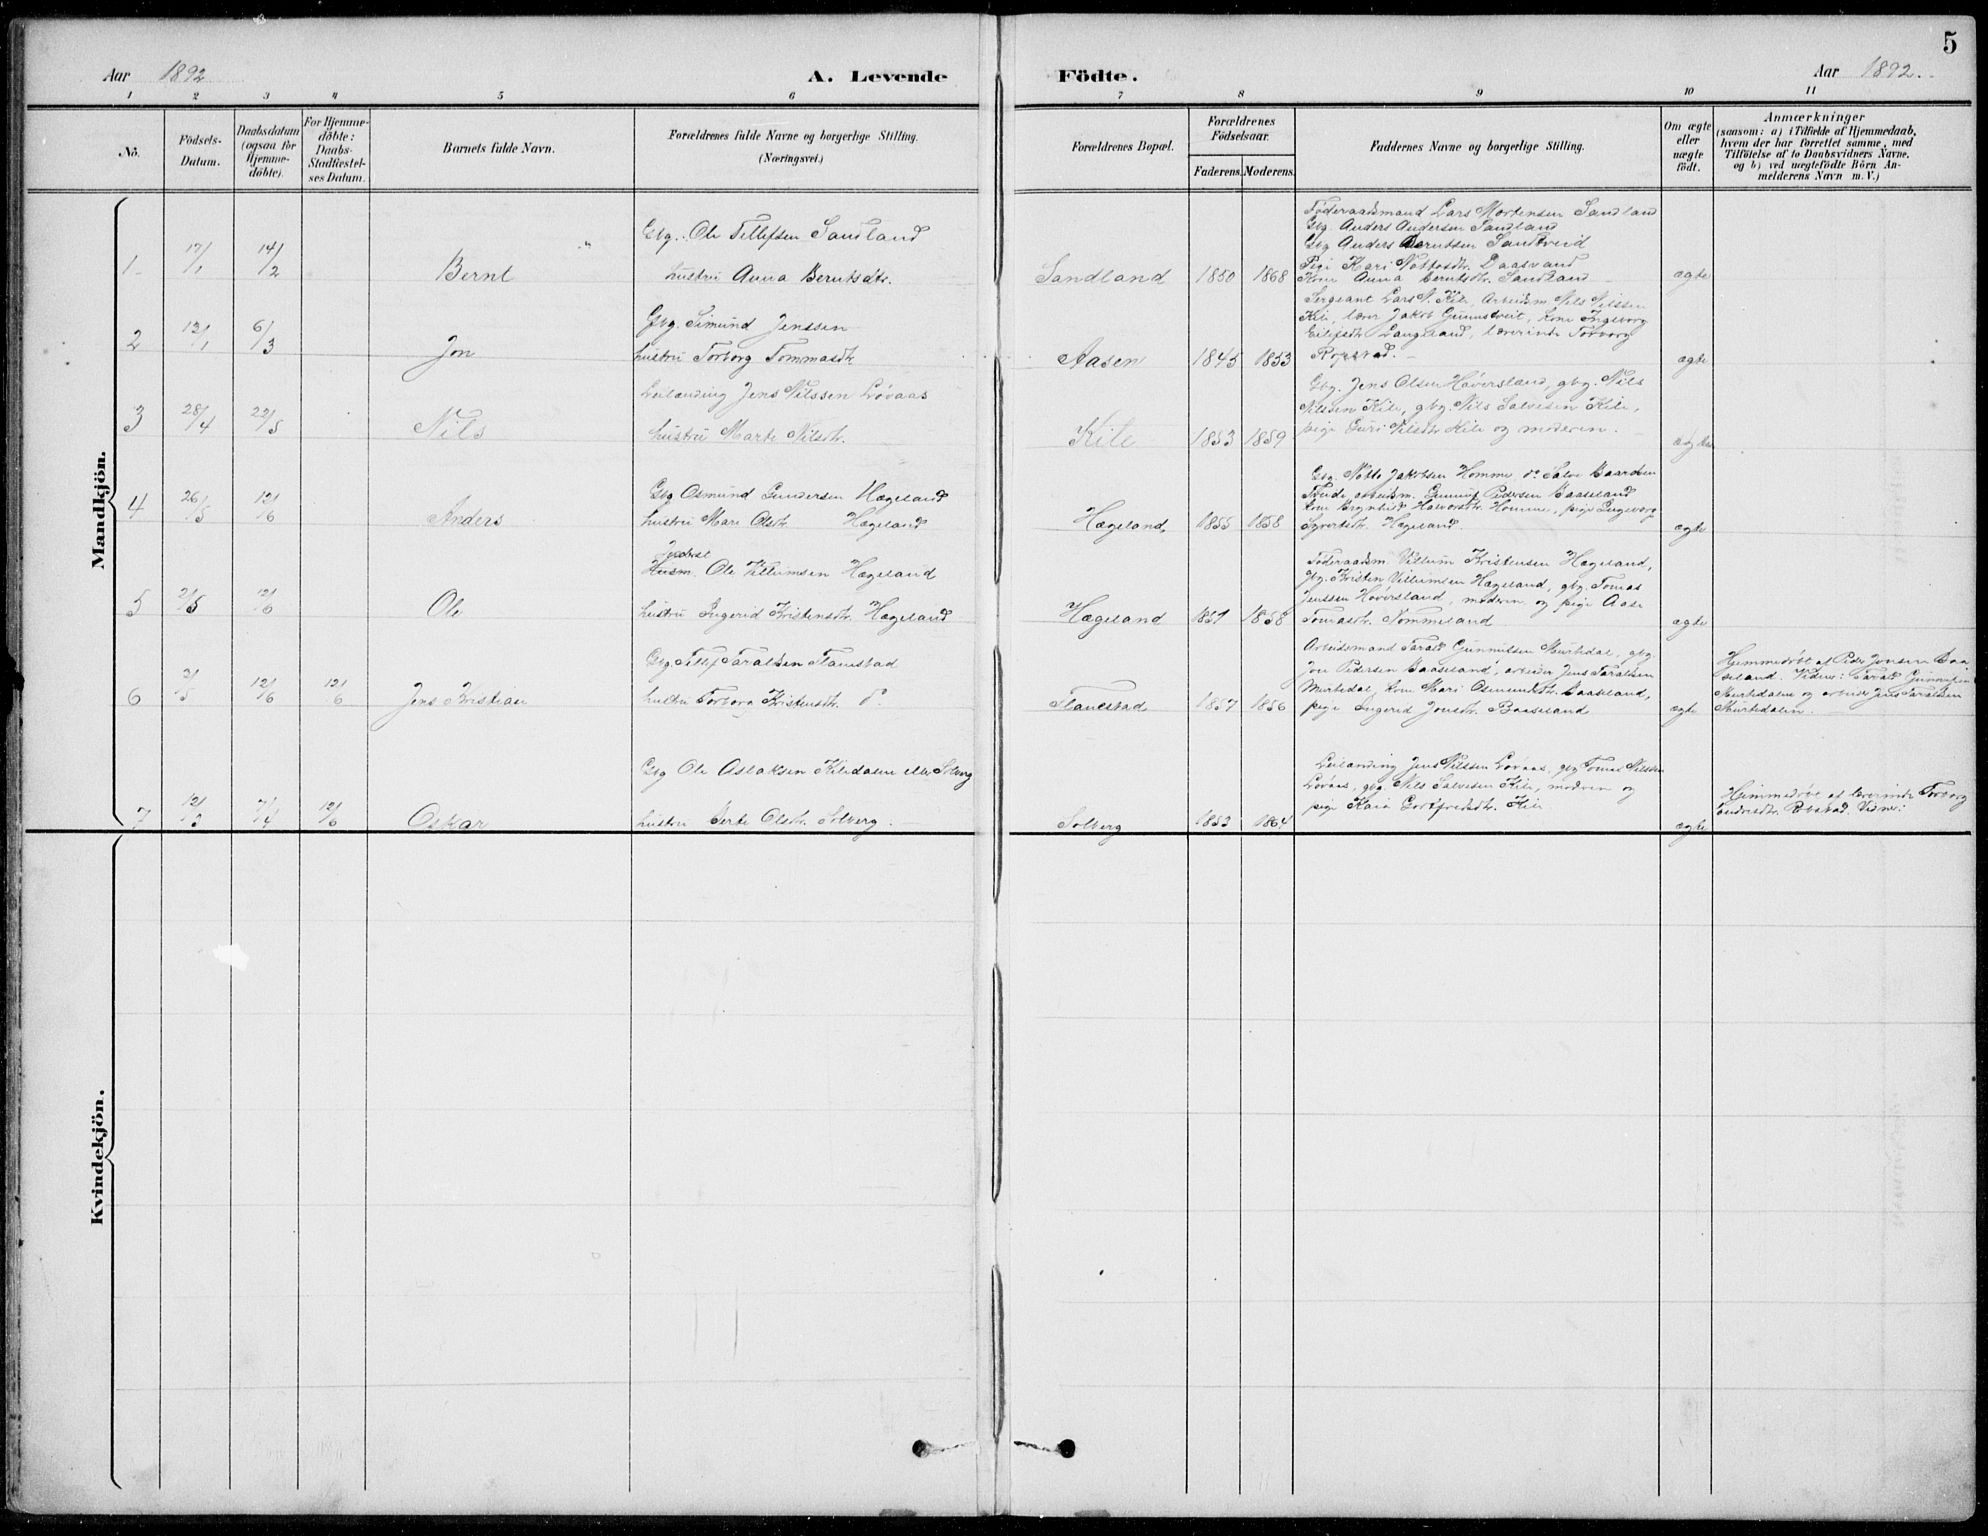 5
Aar 1892
A. Levende
Födte.
Aar 1892.
1 2 3 4 5 6 7 8 9 10 11
No.
Födsels-
Datum.
Daabsdatum
(ogsaa for
Hjemme-
döbte).
For Hjemme-
døbte:
Daabs-
Stadfæstel-
ses Datum.
Barnets fulde Navn.
Forældrenes fulde Navne og borgerlige Stilling.
(Næringsvei.)
Forældrenes Bopæl.
Forældrenes
Födselsaar.
Faderens. Moderens.
Faddernes Navne og borgerlige Stilling.
Om ægte
eller
uægte
födt.
Anmærkninger
(saasom: a) i Tilfælde af Hjemmedaab,
hvem der har forrettet samme, med
Tilföielse af to Daabsvidners Navne,
og b) ved uægtefödte Börn An-
melderens Navn m. V.)
Mandkjön.
1 17/1 14/2 Bernt
Gbg. Ole Tellefsen Sandland
hustru Anna Berntsdtr.
Sandland 1850 1868
Föderaadsmand Lars Mortensen Sandland
Gbg Anders Andersen Sandland
Gbg Anders Berntsen Sandtveid
Pige Kari Nottosdtr. Daasvand
Kone Anna Berntsdtr. Sandland
ægte
2 13/1 6/3 Jon
Gbg. Simund Jenssen
hustru Torborg Tommasdtr
Aasen 1845 1853
Sergeant Lars N. Kile, Arbeidsm. Nils Nilssen
Kile, lærer Jakob Gunnstveit, kone Ingeborg
Eilefsdtr Langeland, lærerinde Torborg
ægte
3 28/4 22/5 Nils
Leilænding Jens Nilssen Løvaas
hustru Marte Nilsdtr.
Kile 1853 1859
Gbg. Jens Olsen Høversland, gbg. Nils
Nilssen Kile, gbg. Nils Salvesen Kile,
pige Guri Nilsdtr Kile og moderen.
ægte
4 26/5 12/6 Anders
Gbg Osmund Gundersen Hægeland
hustru Mari Olsdtr. Hægeland
Hægeland 1855 1858
Gbg. Notto Jakobsen Homme, do Salve Baardsen
arbeidsm. Gunnuf Pedersen Baaseland
kone Brynhild Halvorsdtr. Homme, pige Ingeborg
Syvertsdtr. Hægeland.
ægte
5 2/5 12/6 Ole
Inderst
Husm. Ole Villumsen Hægeland
hustru Ingerid Kristensdtr. Hægeland
Hægeland 1851 1858
Föderaadsm. Villum Kristensen Hægeland,
gbg. Kristen Villumsen Hægeland, gbg Tomas
Jenssen Høversland, moderen og pige Aase
Tomasdtr. Tømmeland
ægte
6 2/5 12/6 12/6 Jens Kristian
Gbg. Tellef Taraldsen Flanestad
hustru Torbora Kristensdtr. do.
Flanestad 1857 1856
Arbeidsmand Tarald Gunnufsen Murtedal, gbg.
Jon Pedersen Baaseland, arbeider Jens Taraldsen
Murtedal, kone Mari Osmundsdtr. Baaseland,
pige Ingerid Jonsdtr. Baaseland
ægte
Hjemmedøbt af Peder Jonsen Baa-
seland. Vidner: Tarald Gunnufsen
Murtedalen og arbeider Jens Taraldsen
Murtedalen.
7 12/3 7/4 12/6 Oskar
Gbg Ole Aslaksen Kiledalen eller Solberg
hustru Berte Olsdtr. Solberg.
Solberg 1853 1864
Leilænding Jens Nilssen Løvaas, gbg Tomas Nilssen
Løvaas, gbg. Nils Salvesen Kile, moderen og
pige Kaia Gottfredsdtr. Kile
ægte
Hjemmedøbt af lærerinde Torborg
Robstad. Vidner:
Kvindekjön.